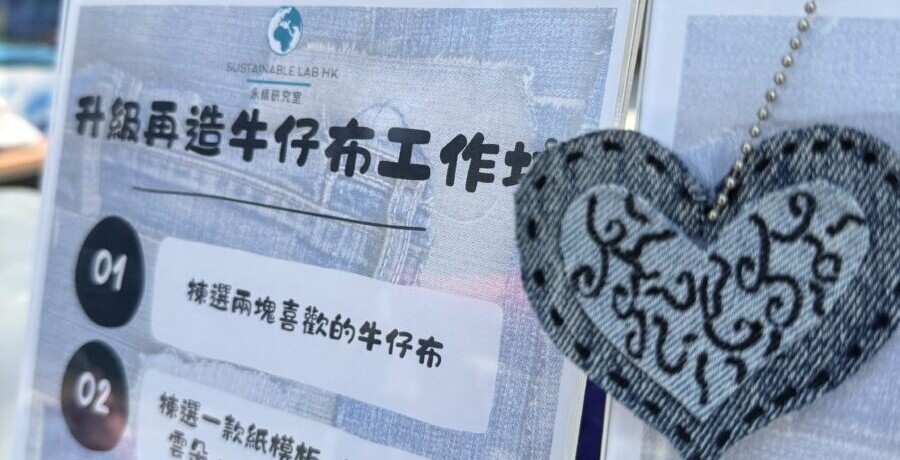 SUSTAINABLE LAB HK
永續研究室
升級再造牛仔布工作坊
01
揀選兩塊喜歡的牛仔布
02
揀選一款紙模板
雲朵